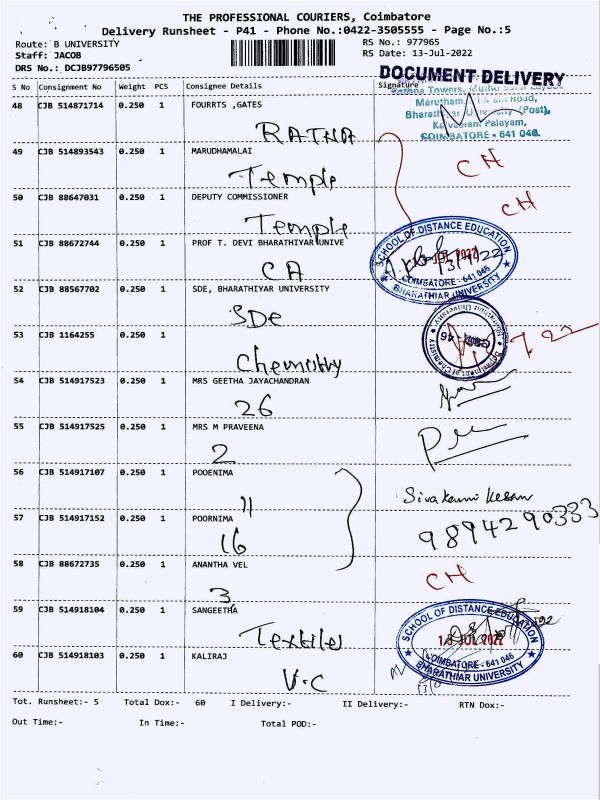 THE PROFESSIONAL COURIERS, Coimbatore
Delivery Runsheet - P41 - Phone No.:0422-3505555 - Page No.:5
Route: B UNIVERSITY
RS No.: 977965
Staff: JACOB
RS Date: 13-Jul-2022
DRS No.: DCJB97796505
DOCUMENT DELIVERY
S No Consignment No Weight PCS Consignee Details Signature
Towers,
48 CJB 514871714 0.250 1 FOURRTS ,GATES
Marutham, Road,
Bharathiar University (Post),
Palayam,
COIMBATORE - 641 046.
RATNA
49 CJB 514893543 0.250 1 MARUDHAMALAI
CH
Temple
50 CJB 88647031 0.250 1 DEPUTY COMMISSIONER
CH
Temple
51 CJB 88672744 0.250 1 PROF T. DEVI BHARATHIYAR UNIVE
SCHOOL OF DISTANCE EDUCATION
JUL 2022
COIMBATORE - 641 046
BHARATHIAR UNIVERSITY
CA
52 CJB 88567702 0.250 1 SDE, BHARATHIYAR UNIVERSITY
SDe
53 CJB 1164255 0.250 1
Department of Chemistry
Bharathiar University
Chemistry
54 CJB 514917523 0.250 1 MRS GEETHA JAYACHANDRAN
26
55 CJB 514917525 0.250 1 MRS M PRAVEENA
2
56 CJB 514917107 0.250 1 POOENIMA
11
57 CJB 514917152 0.250 1 POORNIMA
9894290333
16
58 CJB 88672735 0.250 1 ANANTHA VEL
CH
3
59 CJB 514918104 0.250 1 SANGEETHA
SCHOOL OF DISTANCE EDUCATION
JUL 2022
COIMBATORE - 641 046
BHARATHIAR UNIVERSITY
Textiles
60 CJB 514918103 0.250 1 KALIRAJ
V.C
Tot. Runsheet:- 5 Total Dox:- 60 I Delivery:- II Delivery:- RTN Dox:-
Out Time:- In Time:- Total POD:-